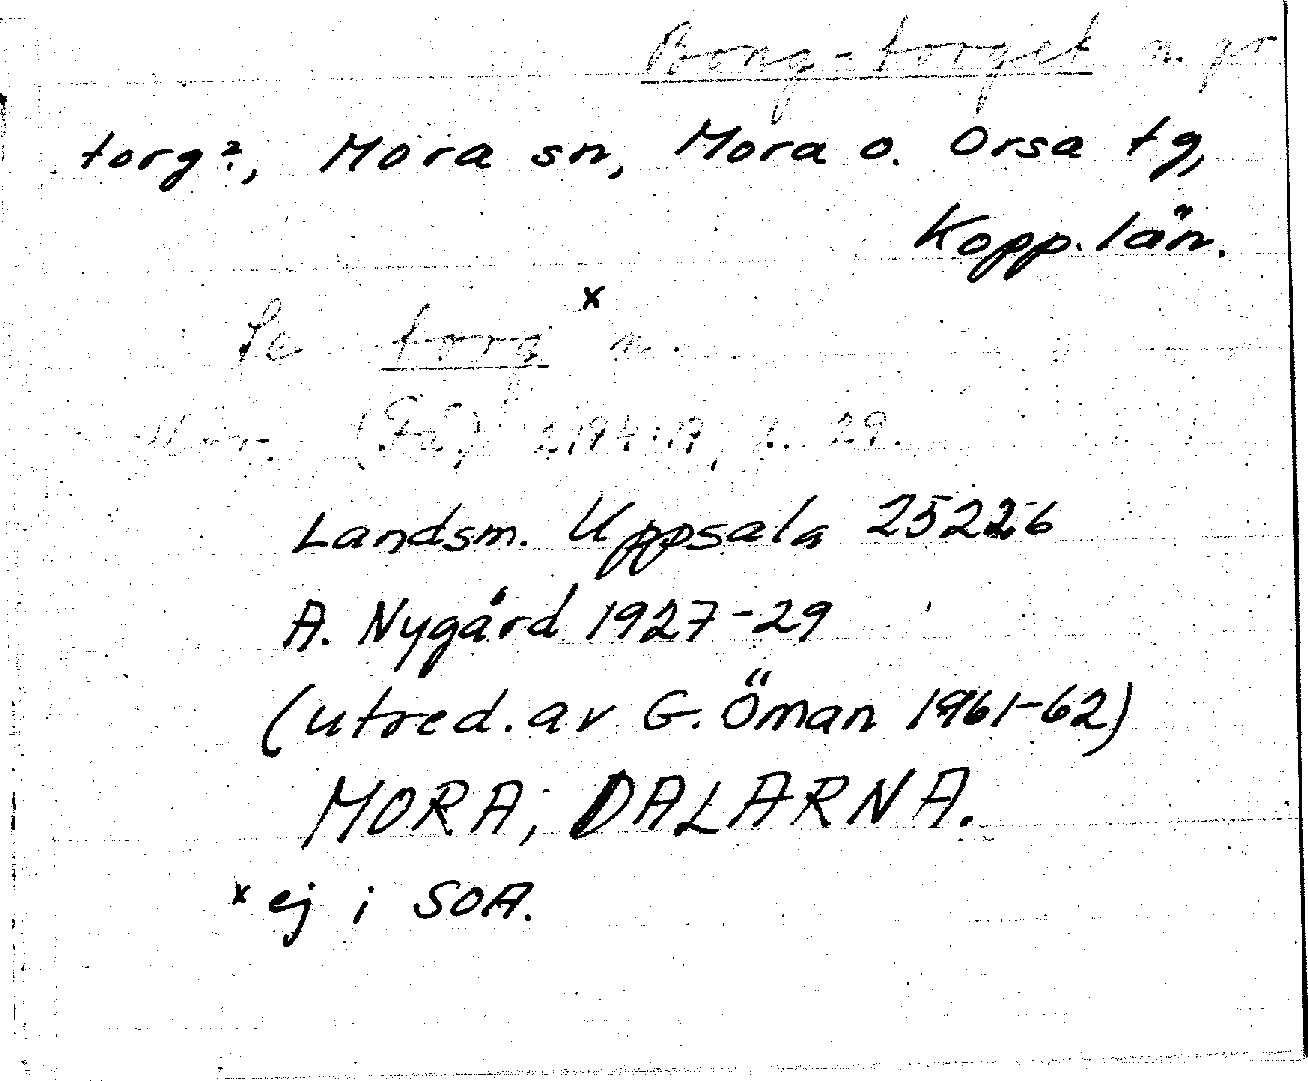 Bong-torget n. pr
torg?, Mora sn, Mora o. Orsa tg,
Kopp. län.
Se torg x n.
(Få) s. 29.
Landsm. Uppsala 25226
A. Nygård 1927-29
(utred. av G. Öman 1961-62)
MORA, DALARNA.
x ej i SOA.